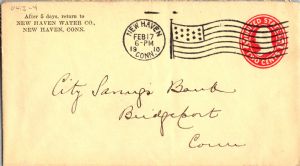 After 5 days, return to
NEW HAVEN WATER CO.,
NEW HAVEN, CONN.
NEW HAVEN
FEB 17
6-PM
19 10
CONN.
UNITED STATES
TWO CENTS
City Savings Bank
Bridgeport
Conn